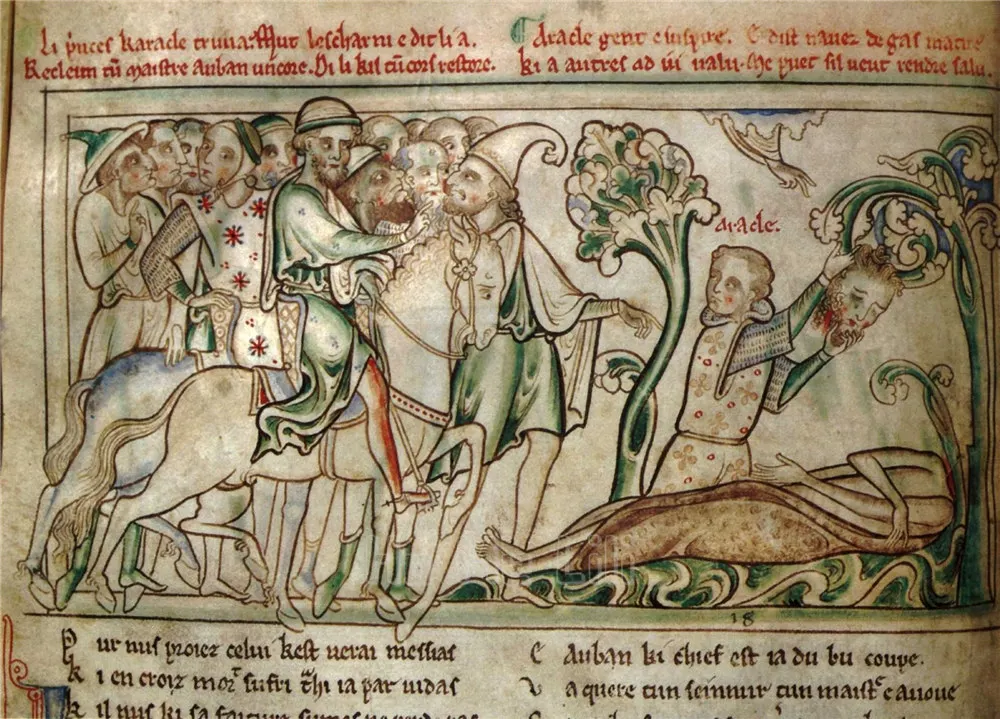 Li p'nces karacle truua: Mut lescharni e dit li a.
Recleim tū maistre auban uncore. Di li kil tū cors restore.
Aracle gent e suspire. E dist nauez de gas matire
ki a autres ad ui ualu. Me puet sil ueut rendre salu.
aracle.
18
P ur nus proiez celui kest uerai messias
k i en croiz mort sufri ia par iudas
k il nus ki sa faiture sumes ne
E auban ki chief est ia du bu coupe.
V a quere tun seinnur tun maistre auoue